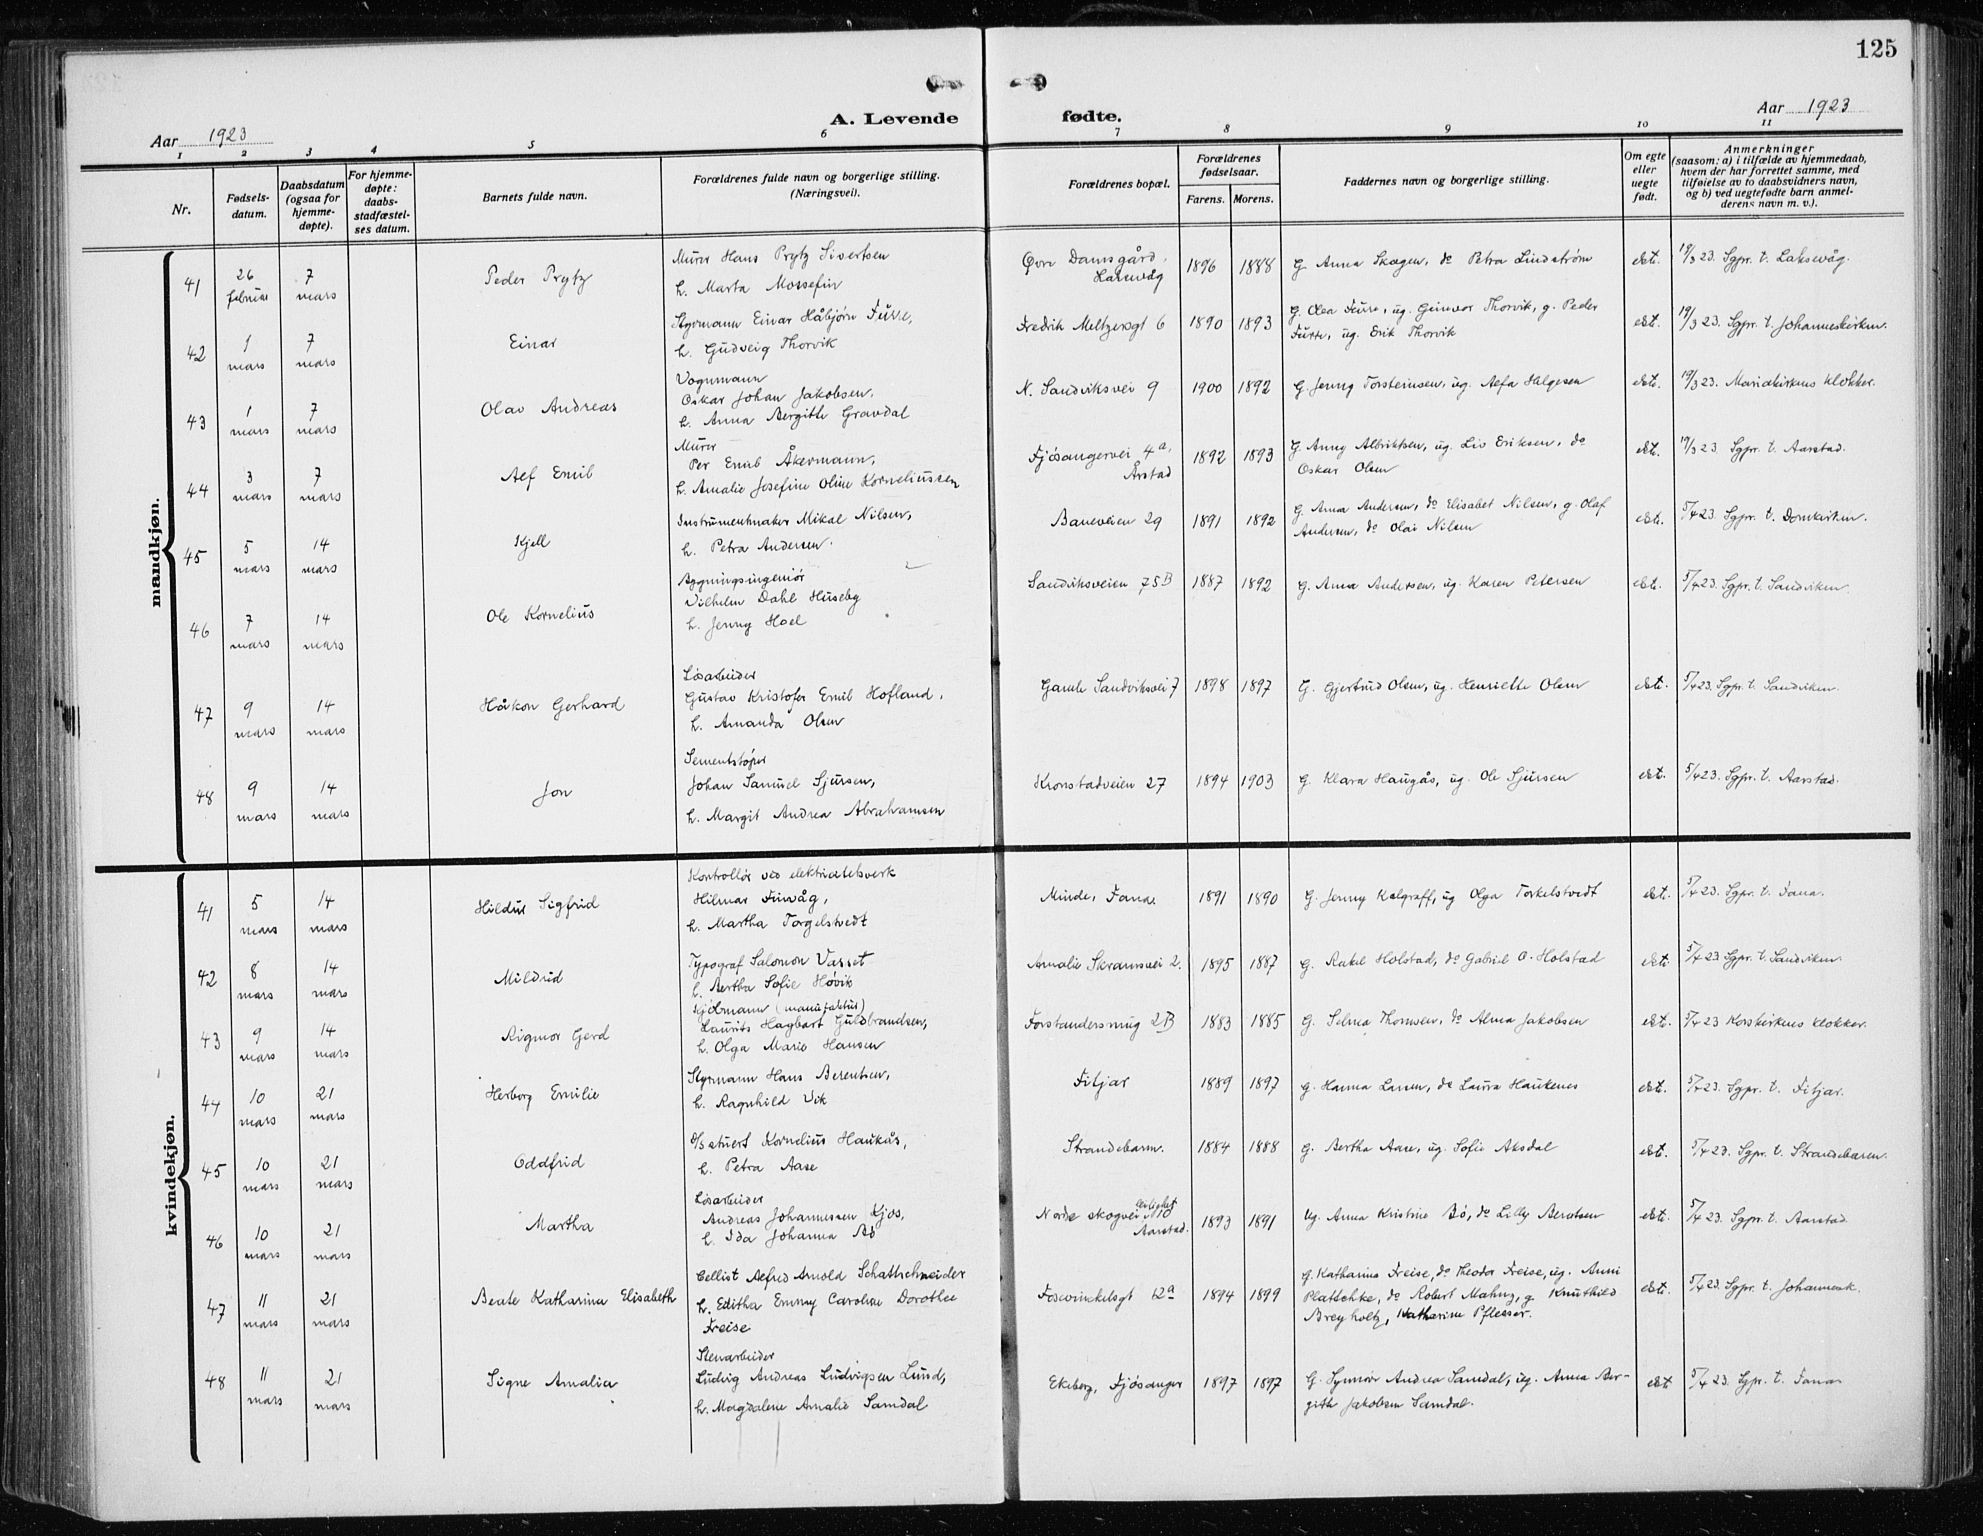 125
A. Levende fødte.
Aar 1923
Aar 1923
1 2 3 4 5 6 7 8 9 10 11
Nr.
Fødsels-
datum.
Daabsdatum
(ogsaa for
hjemme-
døpte).
For hjemme-
døpte:
daabs-
stadfæstel-
ses datum.
Barnets fulde navn.
Forældrenes fulde navn og borgerlige stilling.
(Næringsvei).
Forældrenes bopæl.
Forældrenes
fødselsaar.
Farens. Morens.
Faddernes navn og borgerlige stilling.
Om egte
eller
uegte
født.
Anmerkninger
(saasom: a) i tilfælde av hjemmedaab,
hvem der har forrettet samme, med
tilføielse av to daabsvidners navn,
og b) ved uegtefødte barn anmel-
derens navn m. v.).
mandkjøn.
41 26 februar 7 mars Peder Prytz
Murer Hans Prytz Sivertsen
h. Marta Mossefin
Øvre Damsgård, Laksevåg 1896 1888
G. Anna Skagen, do Petra Lindstrøm
ekte. 19/3 23. Sgpr. t. Laksevåg.
42 1 mars 7 mars Einar
Styrmann Einar Håbjørn Furre,
h. Gudveig Thorvik
Fredrik Meltzersgt 6 1890 1893
G. Olea Furre, ug. Gunvor Thorvik, g. Peder
Furre, ug. Erik Thorvik
ekte. 19/3 23. Sgpr. t. Johanneskirken.
43 1 mars 7 mars Olav Andreas
Vognmann
Oskar Johan Jakobsen,
h. Anna Bergitte Gravdal
N. Sandviksvei 9 1900 1892
G. Jenny Torsteinsen, ug. Alfa Helgesen
ekte. 19/3 23. Mariakirkens klokker.
44 3 mars 7 mars Alf Emil
Murer
Per Emil Åkermann,
h. Amalie Josefine Oline Korneliussen
Fjøsangervei 4a, Årstad 1892 1893
G. Anny Albriktsen, ug. Liv Eriksen, do
Oskar Olsen
ekte. 19/3 23. Sgpr. t. Aarstad.
45 5 mars 14 mars Kjell
Instrumentmaker Mikal Nilsen,
h. Petra Andersen.
Baneveien 29 1891 1892
G. Anna Andersen, do Elisabet Nilsen, g. Olaf
Andersen, do Olai Nilsen
ekte. 5/4 23. Sgpr. t. Domkirken.
46 7 mars 14 mars Ole Kornelius
Bygningsingeniør
Vilhelm Dahl Huseby
h. Jenny Hoel
Sandviksveien 75B 1887 1892
G. Anna Andersen, ug. Karen Petersen
ekte. 5/4 23. Sgpr. t. Sandviken.
47 9 mars 14 mars Håkon Gerhard
Løsarbeider
Gustav Kristofer Emil Hofland,
h. Amanda Olsen
Gamle Sandviksvei 7 1898 1897
G. Gjertrud Olsen, ug. Henriette Olsen
ekte. 5/4 23. Sgpr. t. Sandviken.
48 9 mars 14 mars Jon
Sementstøper
Johan Samuel Sjursen,
h. Margit Andrea Abrahamsen
Kronstadveien 27 1894 1903
G. Klara Haugås, ug. Ole Sjursen
ekte. 5/4 23. Sgpr. t. Aarstad.
kvindekjøn.
41 5 mars 14 mars Hildur Sigfrid
Kontrollør ved elektrisitetsverk
Hilmar Finvåg,
h. Martha Torgelstvedt
Minde, Fana. 1891 1890
G. Jenny Kalgraff, ug Olga Torkelstvedt
ekte. 5/4 23. Sgpr. t. Fana.
42 8 mars 14 mars Mildrid
Typograf Salomon Vasset
h. Bertha Sofie Høvik
Amalie Skramsvei 2. 1895 1887
G. Rakel Holstad, do Gabriel O. Holstad
ekte. 5/4 23. Sgpr. t. Sandviken.
43 9 mars 14 mars Rigmor Gerd
Kjøbmann (manufaktur)
Laurits Hagbart Guldbrandsen,
h. Olga Marie Hansen
Forstandersmug 2B 1883 1885
G. Selma Thomsen, do Alma Jakobsen
ekte. 5/4 23 Korskirkens klokker.
44 10 mars 21 mars Herborg Emilie
Styrmann Hans Berentsen,
h. Ragnhild Vik
Fitjar 1889 1897
g. Hanna Larsen, do Laura Haukenes
ekte. 5/4 23. Sgpr. t. Fitjar.
45 10 mars 21 mars Oddfrid
D/S stuert Kornelius Haukås,
h. Petra Aase
Strandebarm. 1884 1888
g. Bertha Aase, ug. Sofie Aksdal
ekte. 5/4 23. Sgpr. t. Strandebarm.
46 10 mars 21 mars Martha
Løsarbeider
Andreas Johannessen Kjos,
h. Ida Johanna Bø
Nordre skogvei 10 Aarstad. 1893 1891
Ug. Anna Kristine Bø, do Lilly Berntsen
ekte. 5/4 23. Sgpr. t. Aarstad.
47 11 mars 21 mars Beate Katharina Elisabeth
Cellist Alfred Arnold Schattschneider
h. Editha Emmy Caroline Dorothee
Freise
Fosswinckelsgt 12a 1894 1899
G. Katharina Freise, do Theodor Freise, ug. Anni
Plattehke, do Robert Mahng, g Knuthild
Breyholtz, Katharine Pflesser.
ekte. 5/4 23. Sgpr. t. Johannesk.
48 11 mars 21 mars Signe Amalia
Stenarbeider
Ludvig Andreas Ludvigsen Lund,
h. Magdalene Amalie Samdal
Ekeberg, Fjøsanger 1897 1897
G. Synnøv Andrea Samdal, ug. Anna Ber-
gith Jakobsen Samdal.
ekte 5/4 23. Sgpr. t. Fana